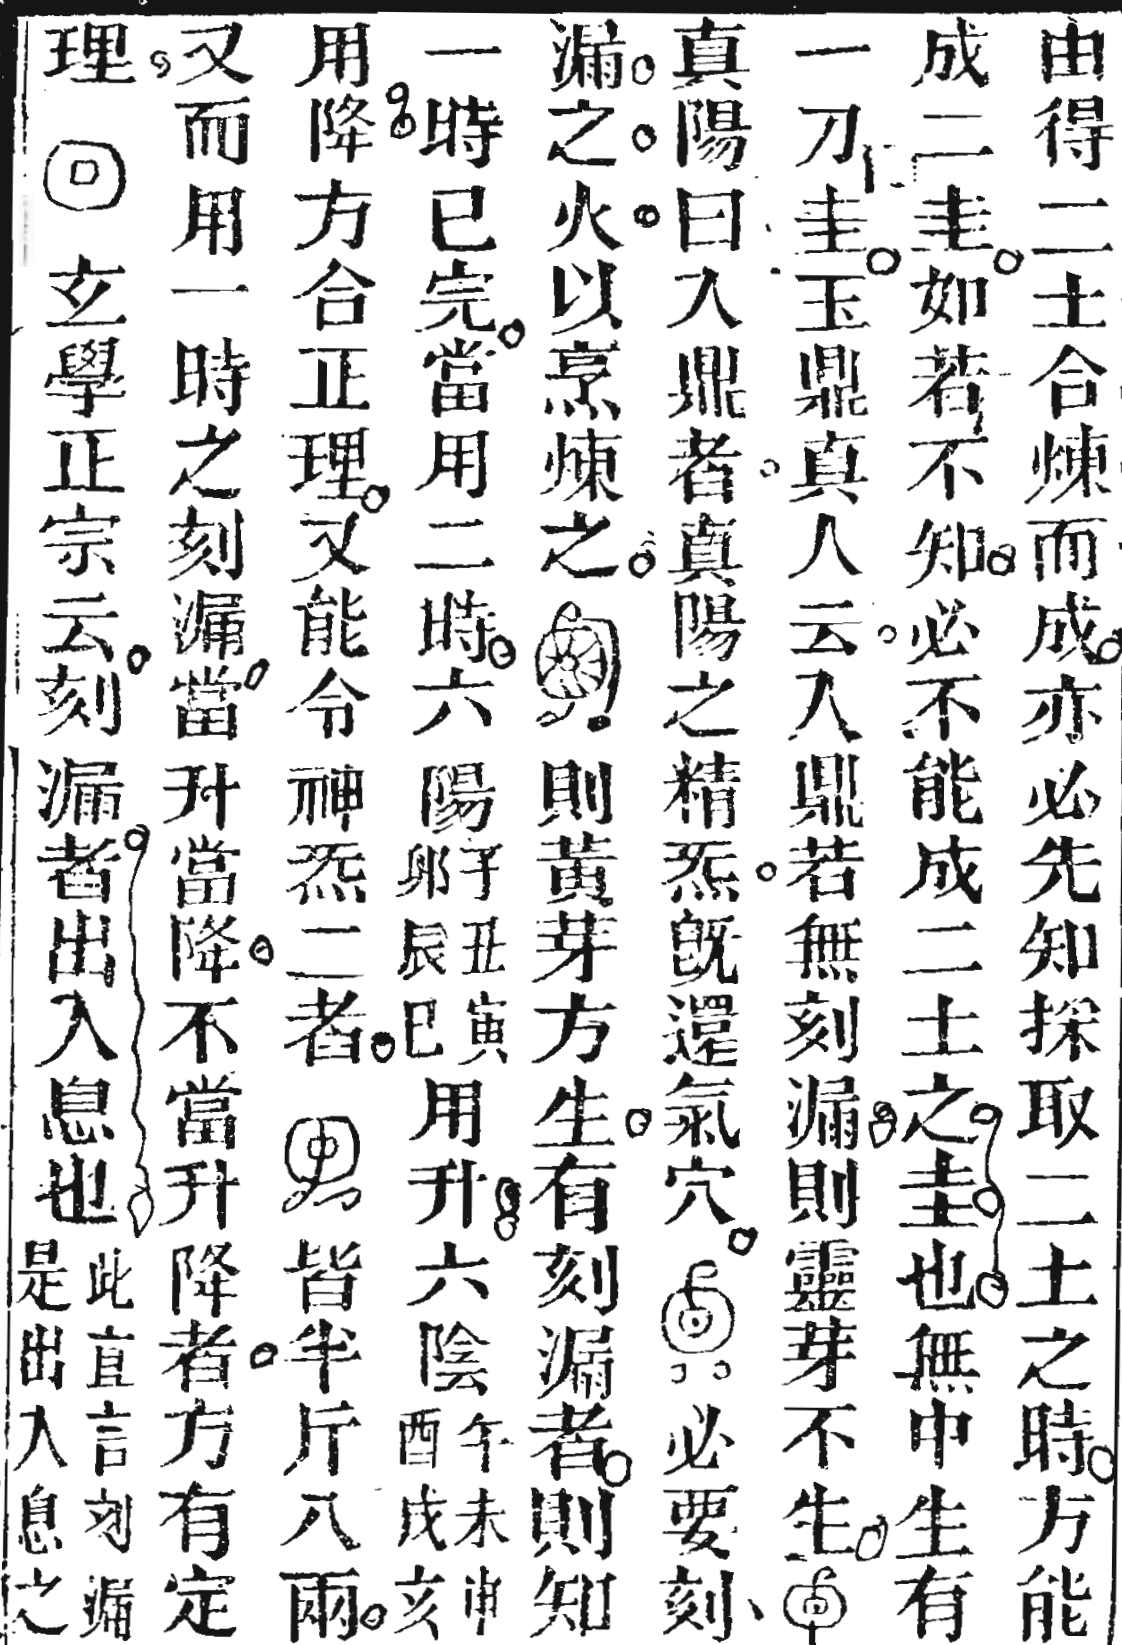 由得二土合煉而成亦必先知採取二土之時方能
成二圭如若不知必不能成二土之圭也無中生有
一刀圭玉鼎真人云入鼎若無刻漏則靈芽不生
真陽曰入鼎者真陽之精炁既還氣穴必要刻
漏之火以烹煉之則黃芽方生有刻漏者則知
一時已完當用二時六陽子丑寅卯辰巳用升六陰午未申酉戌亥
用降方合正理又能令神炁二者皆半斤八兩
又而用一時之刻漏當升當降不當升降者方有定
理玄學正宗云刻漏者出入息也此直言刻漏是出入息之